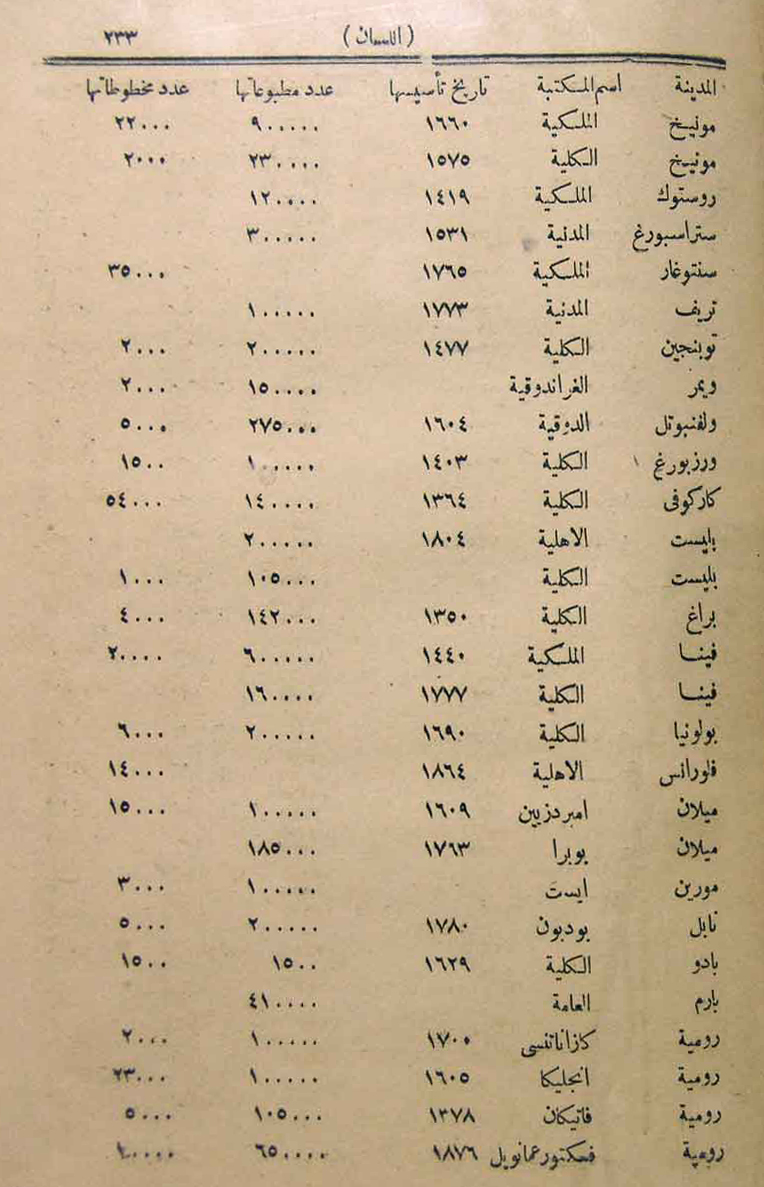 (اللسان) ٢٣٣
المدينة اسم المكتبة تاريخ تأسيسها عدد مطبوعاتها عدد مخطوطاتها
مونيخ الملكية ١٦٦٠ ٩٠٠٠٠٠ ٢٢٠٠٠
مونيخ الكلية ١٥٧٥ ٢٣٠٠٠٠ ٢٠٠٠
روستوك الملكية ١٤١٩ ١٢٠٠٠٠
ستراسبورغ المدنية ١٥٣١ ٣٠٠٠٠٠
سنتوغار الملكية ١٧٦٥ ٣٥٠٠٠
تريف المدنية ١٧٧٣ ١٠٠٠٠٠
توبنجين الكلية ١٤٧٧ ٢٠٠٠٠٠ ٢٠٠٠
ويمر الغراندوقية ١٥٠٠٠٠ ٢٠٠٠
ولفنبوتل الدوقية ١٦٠٤ ٢٧٥٠٠٠ ٥٠٠٠
ورزبورغ الكلية ١٤٠٣ ١٠٠٠٠٠ ١٥٠٠
كاركوفى الكلية ١٣٦٤ ١٤٠٠٠٠ ٥٤٠٠٠
بليست الاهلية ١٨٠٤ ٢٠٠٠٠٠
بليست الكلية ١٠٥٠٠٠ ١٠٠٠
براغ الكلية ١٣٥٠ ١٤٢٠٠٠ ٤٠٠٠
فينا الملكية ١٤٤٠ ٦٠٠٠٠٠ ٢٠٠٠٠
فينا الكلية ١٧٧٧ ١٦٠٠٠٠
بولونيا الكلية ١٦٩٠ ٢٠٠٠٠٠ ٦٠٠٠
فلورانس الاهلية ١٨٦٤ ١٤٠٠٠
ميلان امبردزيين ١٦٠٩ ١٠٠٠٠٠ ١٥٠٠٠
ميلان بوبرا ١٧٦٣ ١٨٥٠٠٠
مورين ايست ١٠٠٠٠٠ ٣٠٠٠
نابل بودبون ١٧٨٠ ٢٠٠٠٠٠ ٥٠٠٠
بادو الكلية ١٦٢٩ ١٥٠٠ ١٥٠٠
بارم العامة ٤١٠٠٠٠
رومية كازاناتنسى ١٧٠٠ ١٠٠٠٠٠ ٢٠٠٠
رومية انجليكا ١٦٠٥ ١٠٠٠٠٠ ٢٣٠٠٠
رومية فاتيكان ١٣٧٨ ١٠٥٠٠٠ ٥٠٠٠
رومية فمكتورعمانويل ١٨٧٦ ٦٥٠٠٠٠